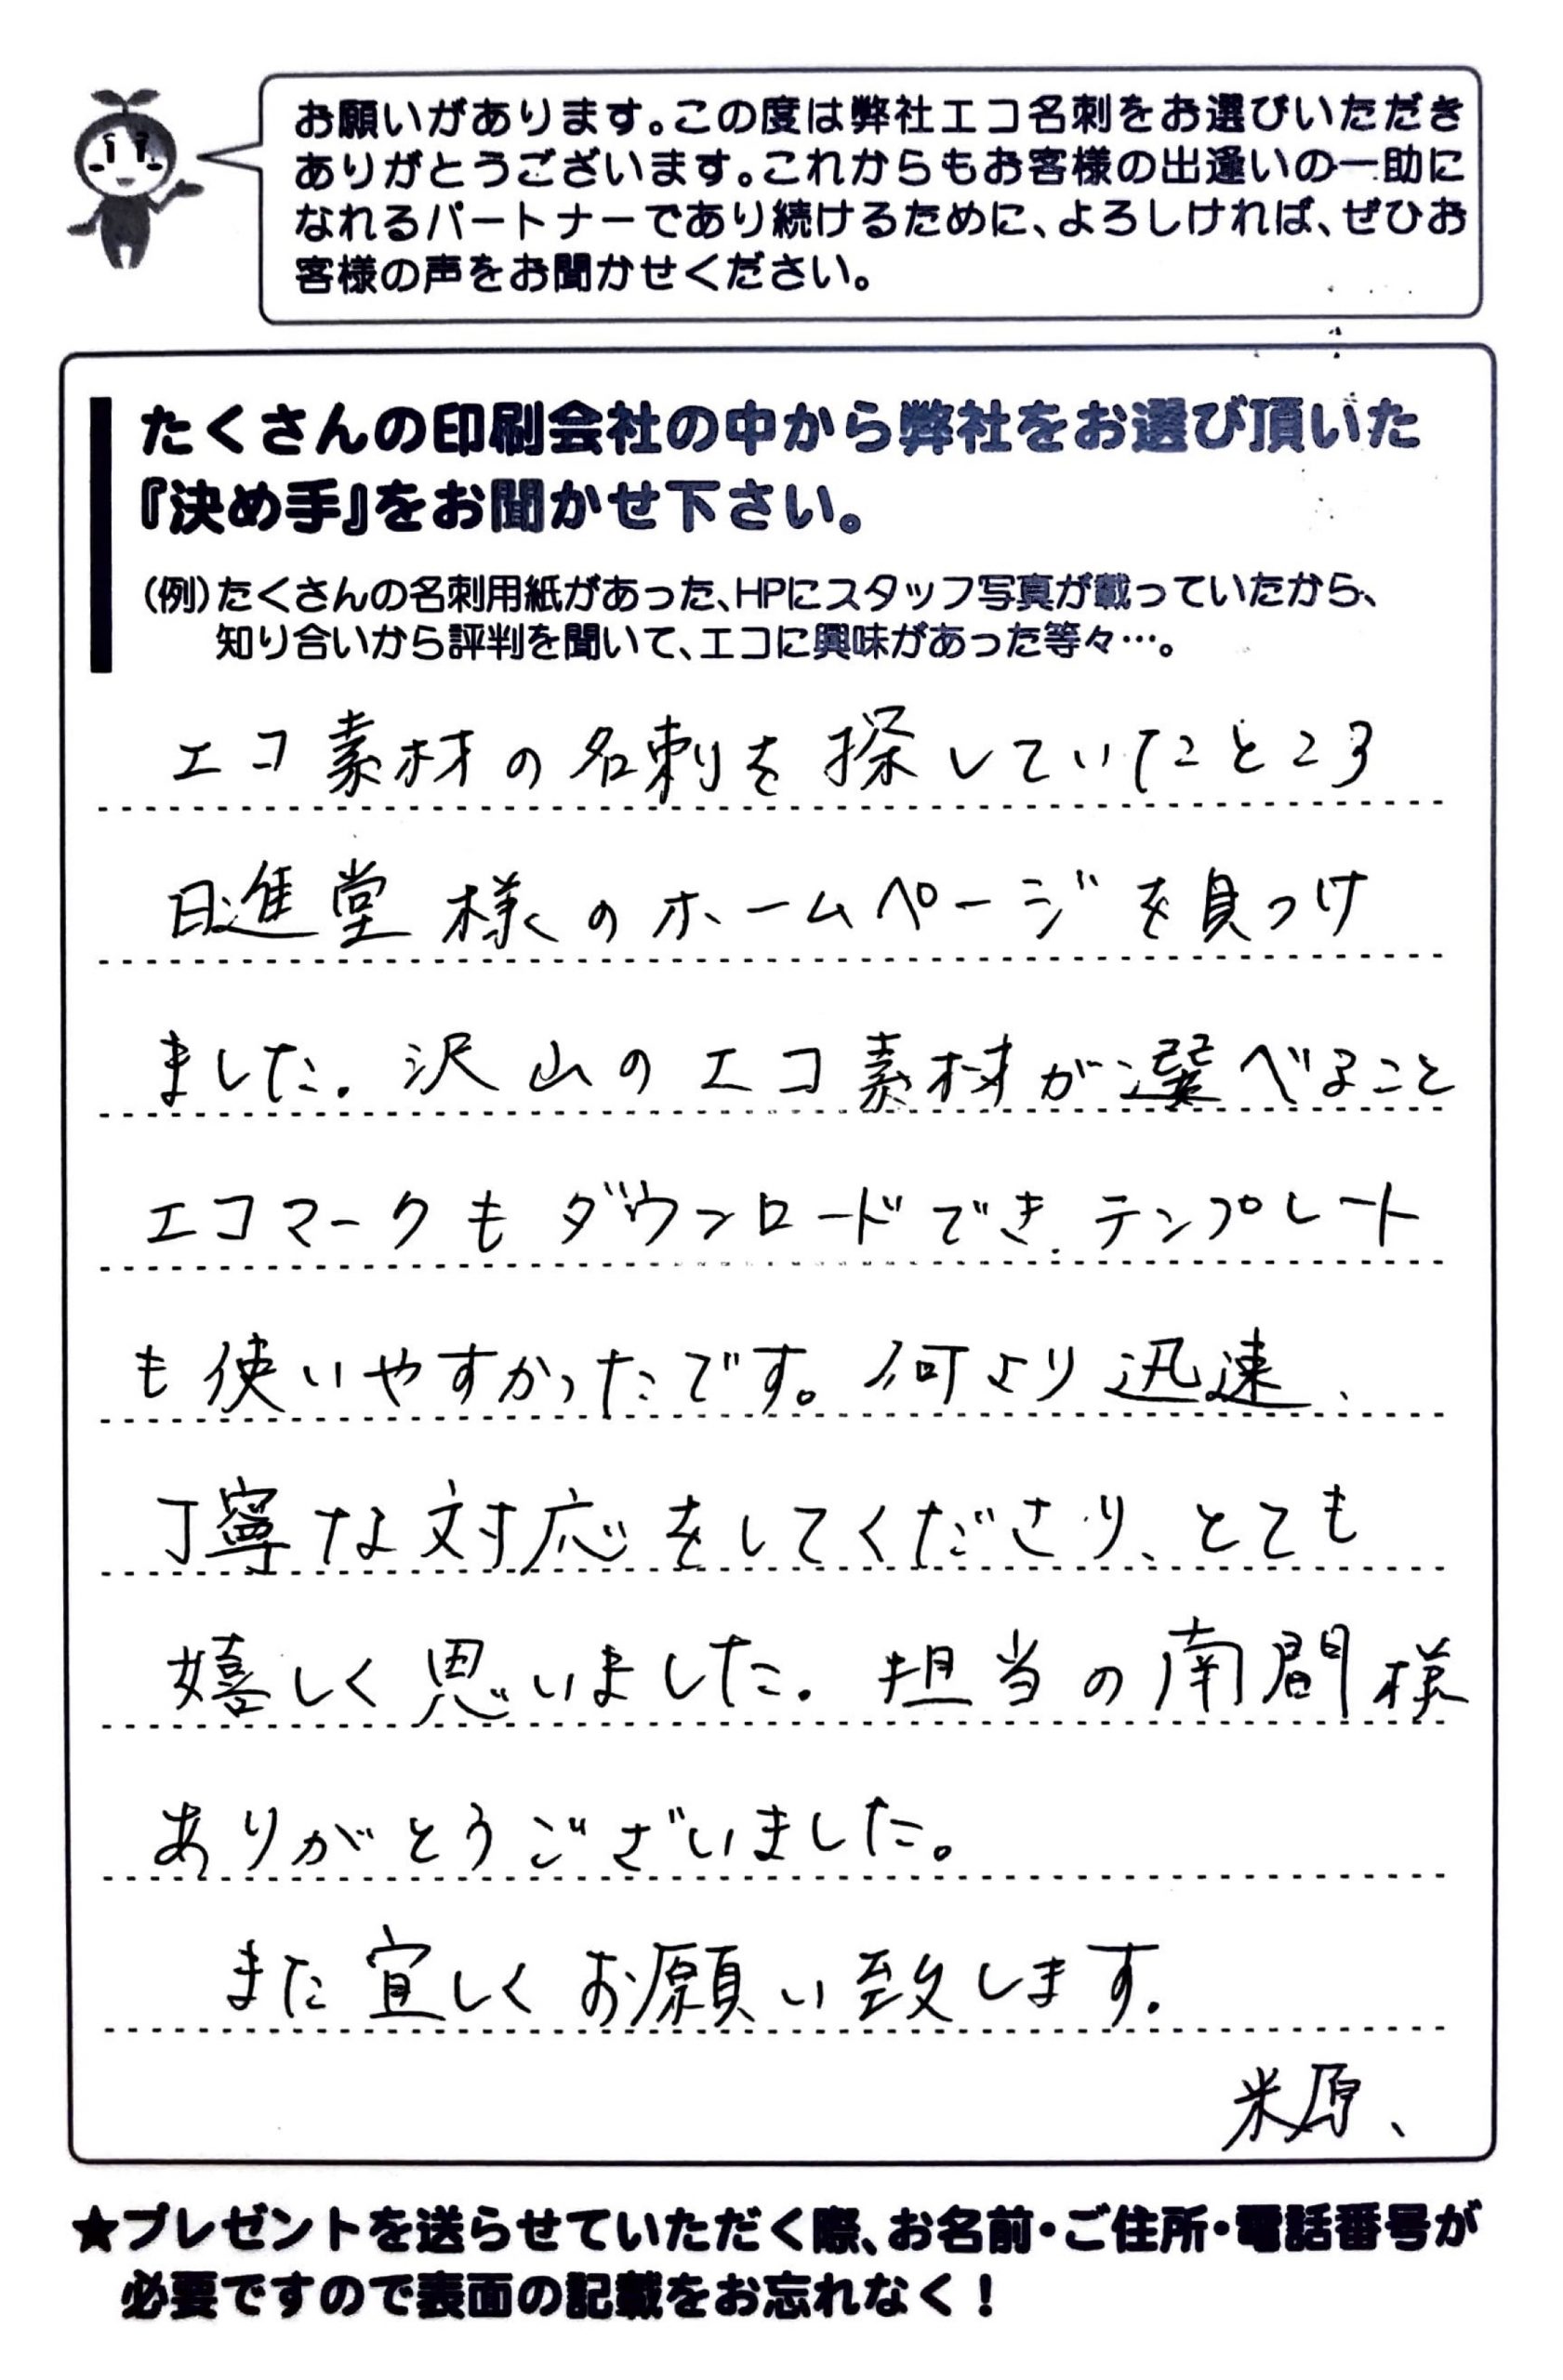 お願いがあります。この度は弊社エコ名刺をお選びいただき
ありがとうございます。これからもお客様の出逢いの一助に
なれるパートナーであり続けるために、よろしければ、ぜひお
客様の声をお聞かせください。
たくさんの印刷会社の中から弊社をお選び頂いた
『決め手』をお聞かせ下さい。
(例)たくさんの名刺用紙があった、HPにスタッフ写真が載っていたから、
知り合いから評判を聞いて、エコに興味があった等々…。
エコ素材の名刺を探していたところ
日進堂様のホームページを見つけ
ました. 沢山のエコ素材が選べること
エコマークもダウンロードでき. テンプレート
も使いやすかったです。何より迅速、
丁寧な対応をしてくださり、とても
嬉しく思いました. 担当の南間様
ありがとうございました。
また宜しくお願い致します.
米原、
★プレゼントを送らせていただく際、お名前・ご住所・電話番号が
必要ですので表面の記載をお忘れなく!